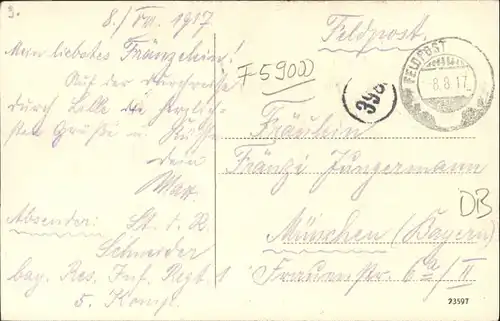 9.
8./VIII. 1917
Mein liebstes Fränzelein!
Auf der Durchreise
durch Lille die herzlich-
sten Grüße u. Küsse
dein
Max.
Absender: St. d. R.
Schneider
bay. Res. Inf. Regt. 1
5. Komp.
Feldpost.
F5900
398
FELDPOST
8.8.17.
Fräulein
Fränzi Jungermann
München (Bayern)
Frauen Str. 6a/II
DB
23597